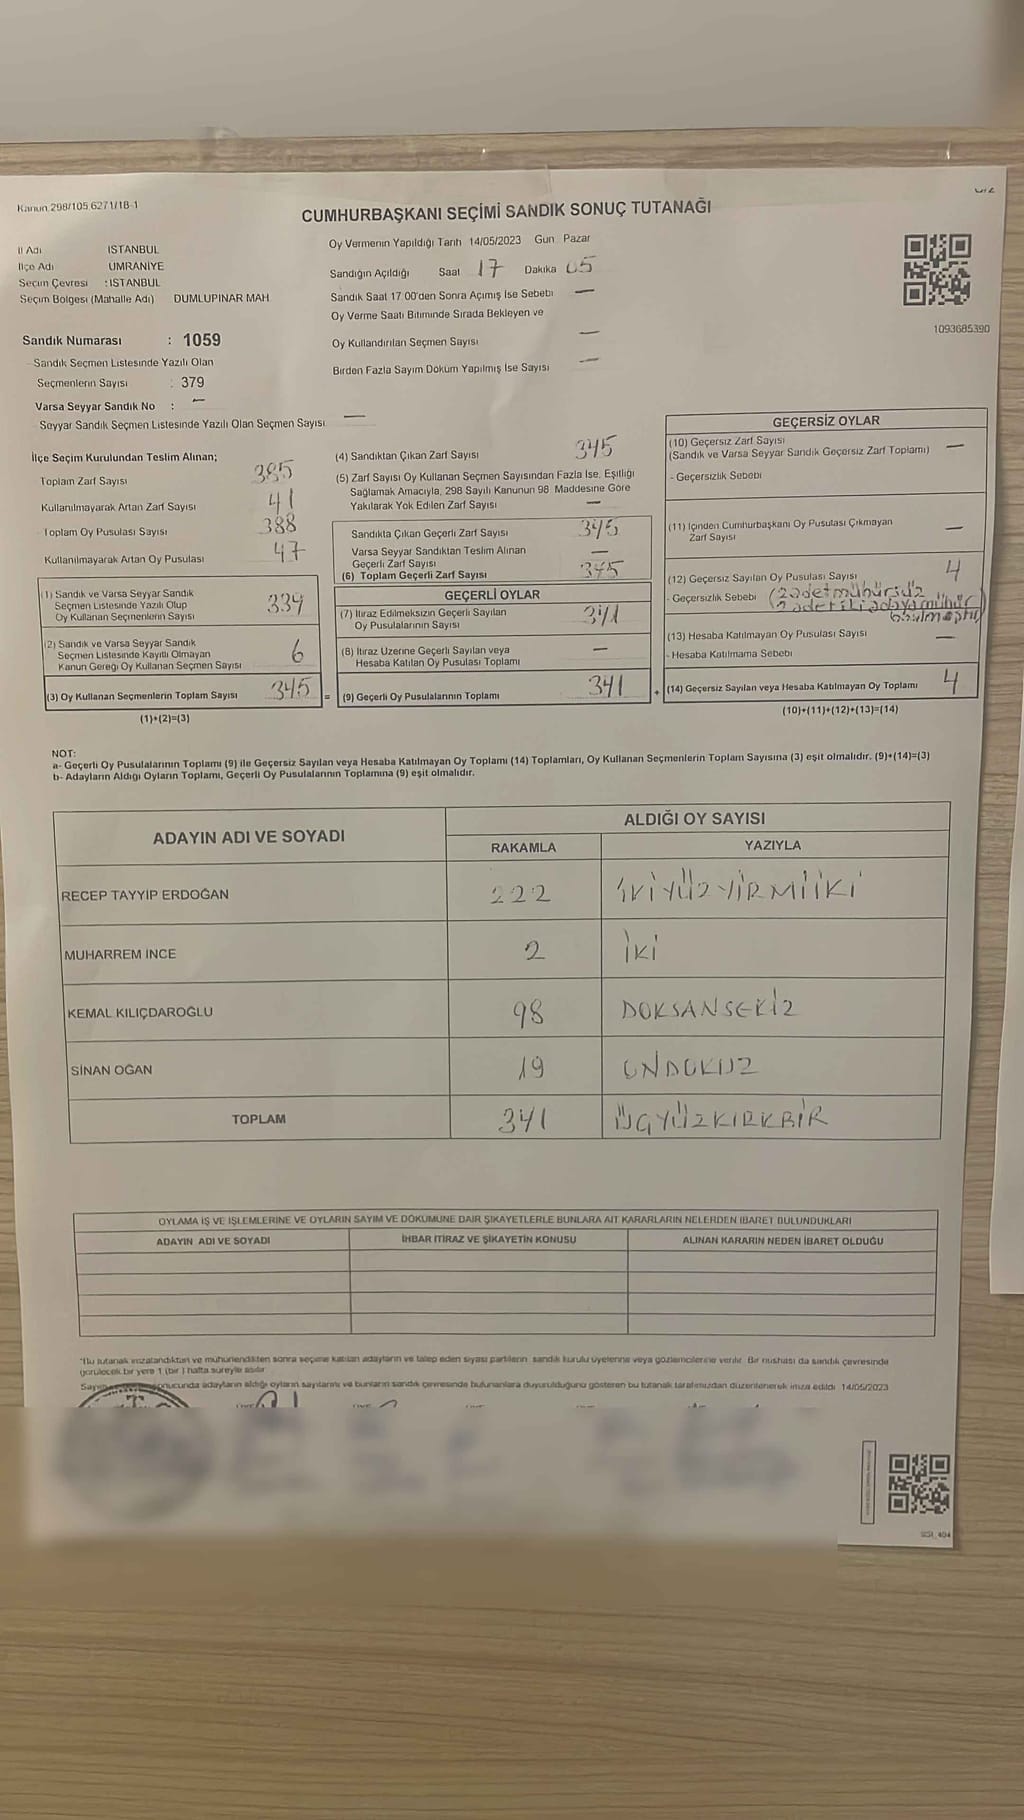 Kanun 298/105 6271/18-1
CUMHURBAŞKANI SEÇİMİ SANDIK SONUÇ TUTANAĞI
İl Adı İSTANBUL
İlçe Adı ÜMRANİYE
Seçim Çevresi : İSTANBUL
Seçim Bölgesi (Mahalle Adı) DUMLUPINAR MAH
Oy Vermenin Yapıldığı Tarih 14/05/2023 Gün Pazar
Sandığın Açıldığı Saat 17 Dakika 05
Sandık Saat 17 00'den Sonra Açılmış İse Sebebi —
Oy Verme Saati Bitiminde Sırada Bekleyen ve
Oy Kullandırılan Seçmen Sayısı —
Birden Fazla Sayım Döküm Yapılmış İse Sayısı —
1093685390
Sandık Numarası : 1059
Sandık Seçmen Listesinde Yazılı Olan
Seçmenlerin Sayısı : 379
Varsa Seyyar Sandık No : —
Seyyar Sandık Seçmen Listesinde Yazılı Olan Seçmen Sayısı —
İlçe Seçim Kurulundan Teslim Alınan;
Toplam Zarf Sayısı 385
Kullanılmayarak Artan Zarf Sayısı 41
Toplam Oy Pusulası Sayısı 388
Kullanılmayarak Artan Oy Pusulası 47
(1) Sandık ve Varsa Seyyar Sandık
Seçmen Listesinde Yazılı Olup
Oy Kullanan Seçmenlerin Sayısı 339
(2) Sandık ve Varsa Seyyar Sandık
Seçmen Listesinde Kayıtlı Olmayan
Kanun Gereği Oy Kullanan Seçmen Sayısı 6
(3) Oy Kullanan Seçmenlerin Toplam Sayısı 345 =
(1)+(2)=(3)
(4) Sandıktan Çıkan Zarf Sayısı 345
(5) Zarf Sayısı Oy Kullanan Seçmen Sayısından Fazla İse, Eşitliği
Sağlamak Amacıyla, 298 Sayılı Kanunun 98 Maddesine Göre
Yakılarak Yok Edilen Zarf Sayısı —
Sandıkta Çıkan Geçerli Zarf Sayısı 345
Varsa Seyyar Sandıktan Teslim Alınan
Geçerli Zarf Sayısı —
(6) Toplam Geçerli Zarf Sayısı 345
GEÇERLİ OYLAR
(7) İtiraz Edilmeksizin Geçerli Sayılan
Oy Pusulalarının Sayısı 341
(8) İtiraz Üzerine Geçerli Sayılan veya
Hesaba Katılan Oy Pusulası Toplamı —
(9) Geçerli Oy Pusulalarının Toplamı 341 +
GEÇERSİZ OYLAR
(10) Geçersiz Zarf Sayısı
(Sandık ve Varsa Seyyar Sandık Geçersiz Zarf Toplamı) —
- Geçersizlik Sebebi
(11) İçinden Cumhurbaşkanı Oy Pusulası Çıkmayan
Zarf Sayısı —
(12) Geçersiz Sayılan Oy Pusulası Sayısı 4
- Geçersizlik Sebebi (2 adet mühürsüz
2 adet iki adaya mühür
basılmıştır)
(13) Hesaba Katılmayan Oy Pusulası Sayısı —
- Hesaba Katılmama Sebebi
(14) Geçersiz Sayılan veya Hesaba Katılmayan Oy Toplamı 4
(10)+(11)+(12)+(13)=(14)
NOT:
a- Geçerli Oy Pusulalarının Toplamı (9) ile Geçersiz Sayılan veya Hesaba Katılmayan Oy Toplamı (14) Toplamları, Oy Kullanan Seçmenlerin Toplam Sayısına (3) eşit olmalıdır. (9)+(14)=(3)
b- Adayların Aldığı Oyların Toplamı, Geçerli Oy Pusulalarının Toplamına (9) eşit olmalıdır.
ADAYIN ADI VE SOYADI ALDIĞI OY SAYISI
RAKAMLA YAZIYLA
RECEP TAYYİP ERDOĞAN 222 İKİYÜZYİRMİİKİ
MUHARREM İNCE 2 İKİ
KEMAL KILIÇDAROĞLU 98 DOKSANSEKİZ
SİNAN OĞAN 19 ONDOKUZ
TOPLAM 341 ÜÇYÜZKIRKBİR
OYLAMA İŞ VE İŞLEMLERİNE VE OYLARIN SAYIM VE DÖKÜMÜNE DAİR ŞİKAYETLERLE BUNLARA AİT KARARLARIN NELERDEN İBARET BULUNDUKLARI
ADAYIN ADI VE SOYADI İHBAR İTİRAZ VE ŞİKAYETİN KONUSU ALINAN KARARIN NEDEN İBARET OLDUĞU
*Bu tutanak imzalandıktan ve mühürlendikten sonra seçime katılan adayların ve talep eden siyasi partilerin sandık kurulu üyelerine veya gözlemcilerine verilir. Bir nüshası da sandık çevresinde
görülecek bir yere 1 (bir ) hafta süreyle asılır
Sayım sonucunda adayların aldığı oyların sayılarını ve bunların sandık çevresinde bulunanlara duyurulduğunu gösteren bu tutanak tarafımızdan düzenlenerek imza edildi 14/05/2023